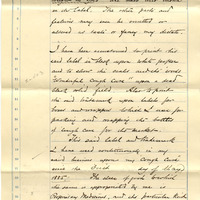 on the Label. The other parts and
features may can be omitted or
altered at each or fancy my dictate.
I have been accustomed to print this
said label in black upon white paper
and to show the scales and the words
"Wonderful Cough Cure" upon a plain
black solid field. Also to print
the said trademark upon labels for
boxes and wrappers which is used for
packing and wrapping the bottles
of Cough Cure for the market.
This said label and trademark
I have used continuously in my
said business upon my Cough Cure
since the first day of May
1885. The class of goods to which
the same is appropriated by me is
Proprietary Medicines, and the particular kind